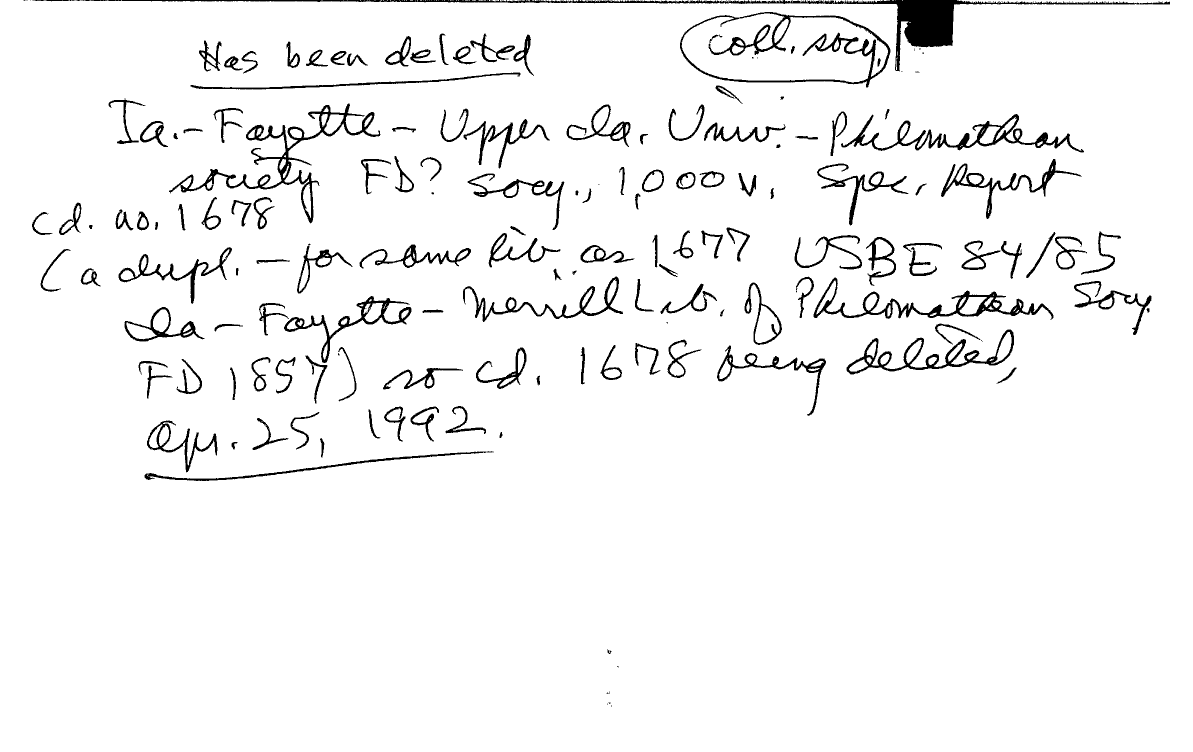 Has been deleted
coll. socy.
Ia. - Fayette - Upper Ia. Univ. - Philomathean
society FD? Socy., 1,000 v. Spec. Report
cd. no. 1678
(a dupl. - for same lib. as 1677 USBE 84/85
Ia - Fayette - Merrill Lib. of Philomathean Socy.
FD 1857) so cd. 1678 being deleted,
Apr. 25, 1992.